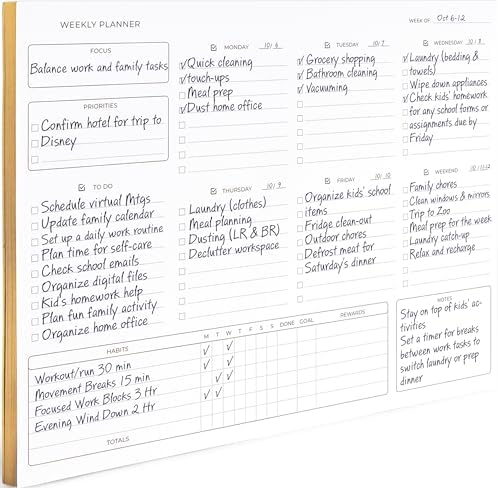 WEEKLY PLANNER
WEEK OF Oct 6-12
FOCUS
Balance work and family tasks
PRIORITIES
Confirm hotel for trip to
Disney
MONDAY 10/6
Quick cleaning
touch-ups
Meal prep
Dust home office
TUESDAY 10/7
Grocery shopping
Bathroom cleaning
Vacuuming
WEDNESDAY 10/8
Laundry (bedding &
towels)
Wipe down appliances
Check kids' homework
for any school forms or
assignments due by
Friday
TO DO
Schedule virtual Mtgs
Update family calendar
Set up a daily work routine
Plan time for self-care
Check school emails
Organize digital files
Kid's homework help
Plan fun family activity
Organize home office
THURSDAY 10/9
Laundry (clothes)
Meal planning
Dusting (LR & BR)
Declutter workspace
FRIDAY 10/10
Organize kids' school
items
Fridge clean-out
Outdoor chores
Defrost meat for
Saturday's dinner
WEEKEND 10/11,12
Family chores
Clean windows & mirrors
Trip to Zoo
Meal prep for the week
Laundry catch-up
Relax and recharge
HABITS M T W T F S S DONE GOAL REWARDS
Workout/run 30 min
Movement Breaks 15 min
Focused Work Blocks 3 Hr
Evening Wind Down 2 Hr
TOTALS
NOTES
Stay on top of kids' ac-
tivities
Set a timer for breaks
between work tasks to
switch laundry or prep
dinner